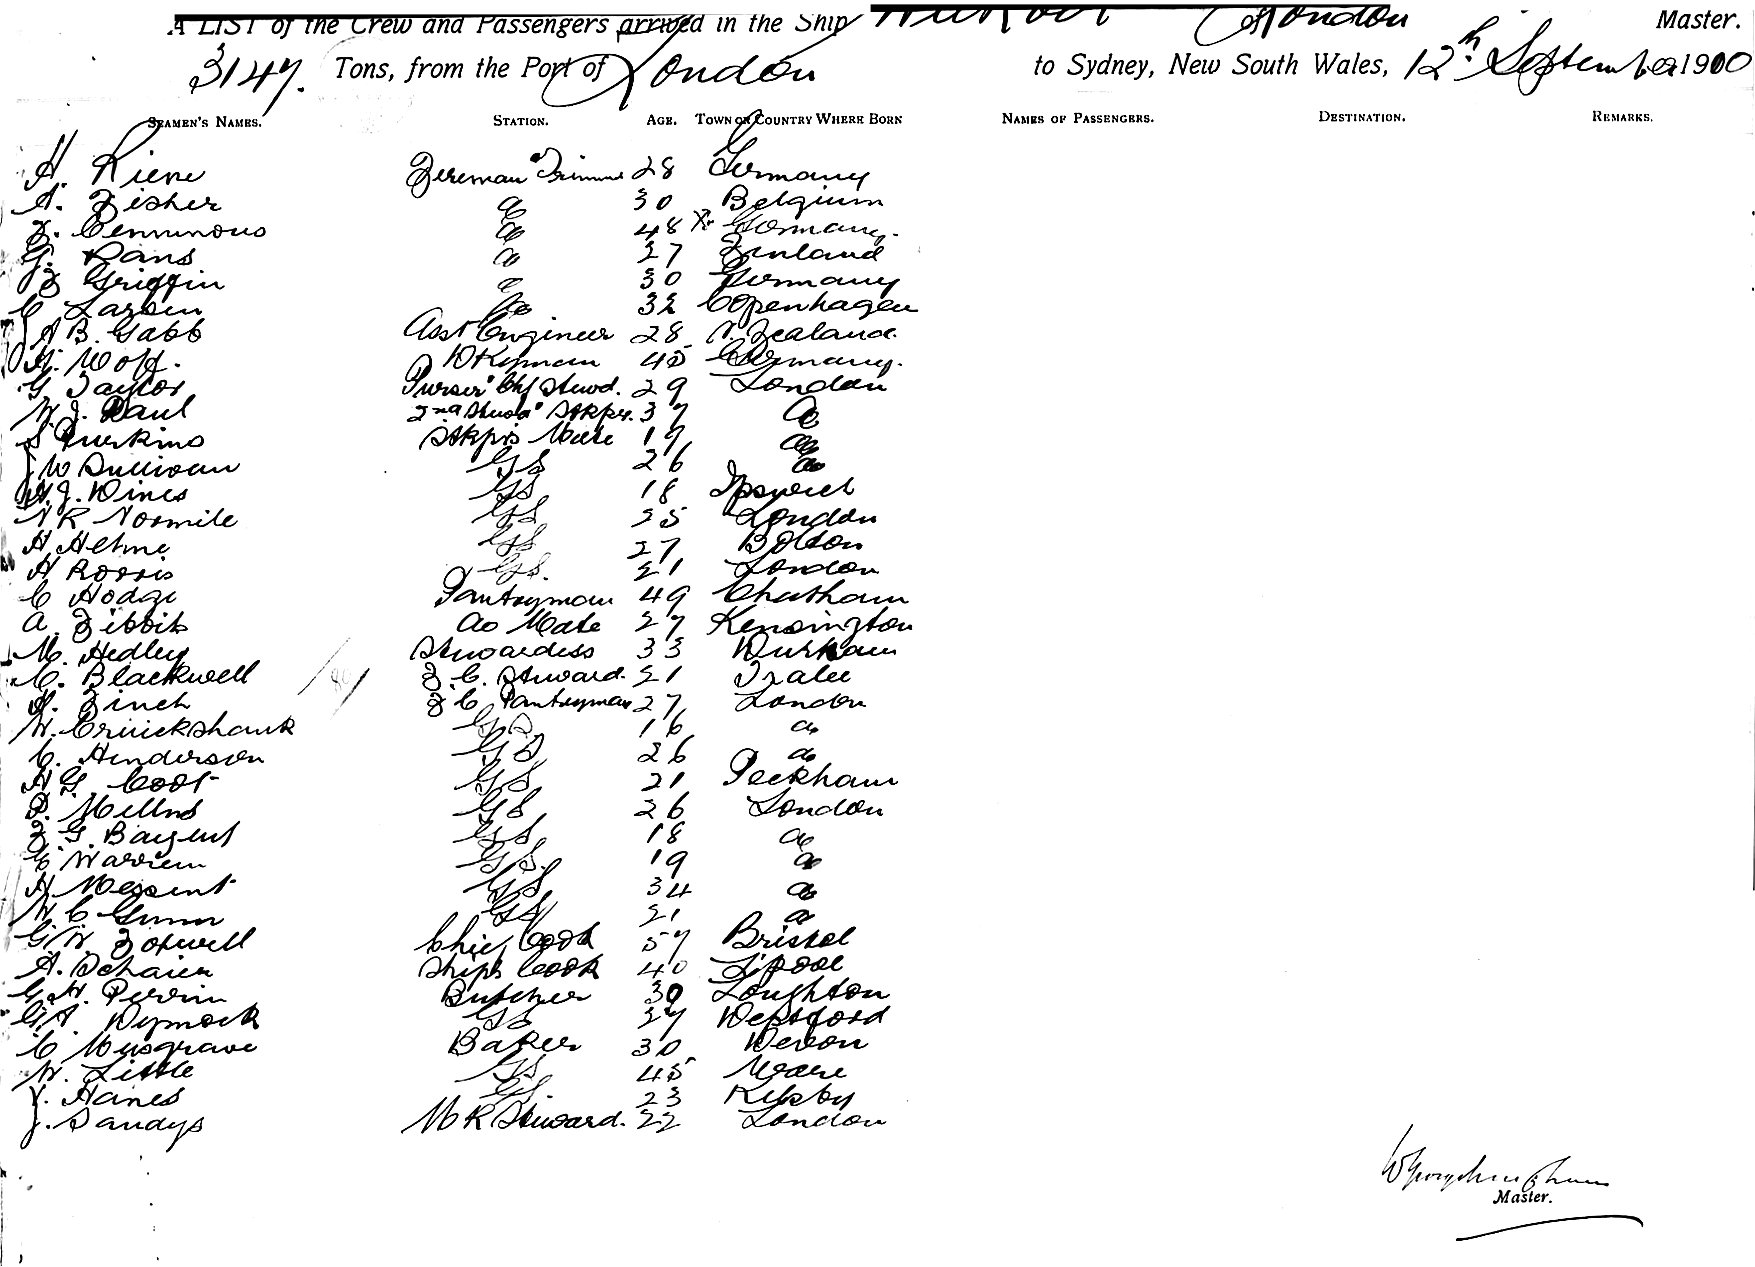 A LIST of the Crew and Passengers arrived in the Ship of London Master.
3147 Tons, from the Port of London to Sydney, New South Wales, 12th September 1900
SEAMEN'S NAMES. STATION. AGE. TOWN OR COUNTRY WHERE BORN NAMES OF PASSENGERS. DESTINATION. REMARKS.
H. Kiene Fireman & Trimmer 28 Germany
A. Fisher Do 30 Belgium
F. Do 48 X Germany.
G. Rans Do 27 Finland
F Griffin Do 30 Germany
C Larsen Do 32 Copenhagen
A B. Gabb Asst Engineer 28 N. Zealand.
H. Wolf. DKeyman 45 Germany.
G Taylor Purser & Chf Stewd. 29 London
W. J. Paul 2nd Stewd & Stkpr. 37 Do
S Purkins Stkprs Mate 19 Do
J W Sullivan GS 26 Do
H. J. Wines GS 18 Ipswich
N R Normile GS 25 London
H Helme GS 27 Bolton
H Rorris GS. 21 London
C Hodge Pantryman 49 Chatham
A. Tibbit Do Mate 27 Kensington
M. Hedley Stewardess 33 Durham
C. Blackwell F. C. Steward. 21 Tralee
H. Finch F C Pantryman 27 London
W. Cruickshank GS 16 Do
C. Henderson GS 26 Do
H G. Coot GS 21 Peckham
P. Millns GS 26 London
F. G. Bargent GS 18 Do
C Warren GS. 19 Do
H Messent GS 34 Do
W C Gunn GS 21 Do
G W. Foxwell Chief Cook 57 Bristol
A. Schaier Ships Cook 40 L'pool
C. H. Perrin Butcher 30 Loughton
G A. Wymark GS 37 Deptford
C Musgrave Baker 30 Devon
W. Little GS 45
V. Hanes GS. 23 Kilsby
J. Sandys M R Steward. 22 London
Master.